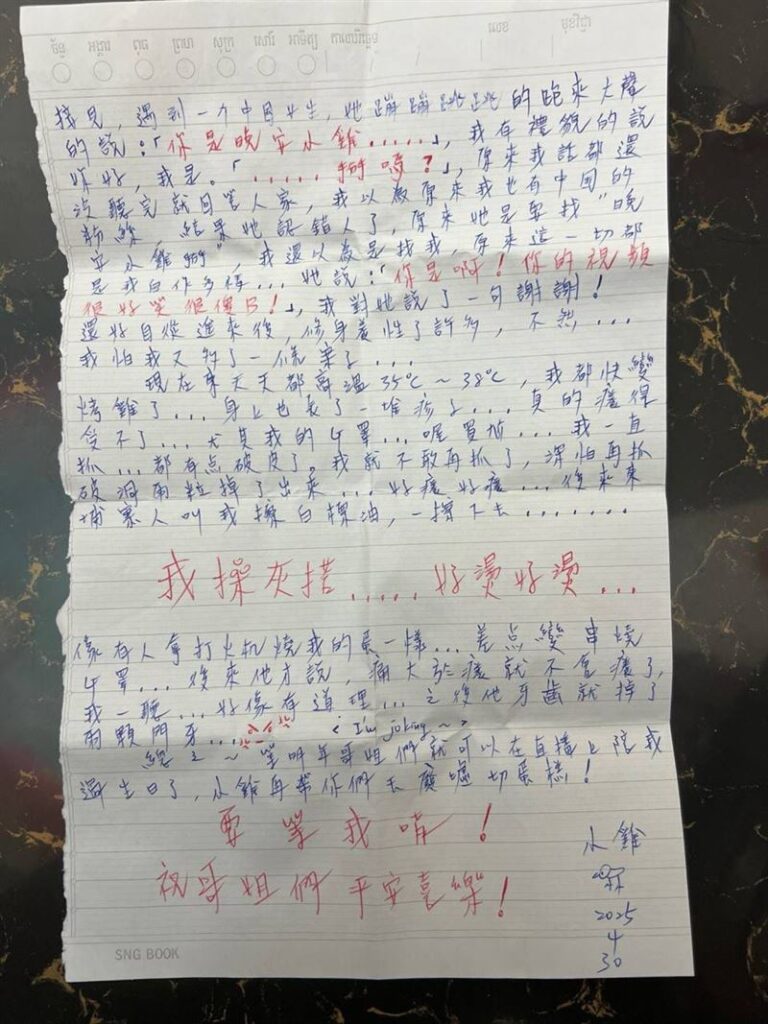 ច័ន្ទ អង្គារ ពុធ ព្រហ សុក្រ សៅរ៍ អាទិត្យ កាលបរិច្ឆេទ / / លេខ មុខវិជ្ជា
找見，遇到一个中国女生，她蹦蹦跳跳的跑來大聲
的說：「你是晚安小雞.....」，我有禮貌的說
你好，我是。「.....掰嗎？」，原來我話都還
沒聽完就回答人家，我以為原來我也有中国的
粉絲，結果她認錯人了，原來她是要找"晚
安小雞掰"，我還以為是找我，原來這一切都
是我自作多情...她說：「你是啊！你的視頻
很好笑很傻B！」，我對她說了一句謝謝！
還好自從進來後，修身養性了許多，不然...
我怕我又多了一條案子...
現在每天天都高溫35℃～38℃，我都快變
烤雞了...身上也長了一堆疹子...真的癢得
受不了...尤其我的睪...喔買尬...我一直
抓...都有点破皮了。我就不敢再抓了，深怕再抓
破洞兩粒掉了出來...好癢好癢...後來柬
埔寨人叫我擦白樹油，一擦下去.......
我操灰搭.....好燙好燙...
像有人拿打火机燒我的蛋一樣...差点變串燒
睪...後來他才說，痛大於癢就不會癢了，
我一聽...好像有道理...之後他牙齒就掉了
兩顆門牙... < I'm joking ~ >
總之～等明年哥姐們就可以在直播上陪我
過生日了，小雞再帶你們去廢墟切蛋糕！
要等我唷！
祝哥姐們平安喜樂！
小雞
2025
4
30
SNG BOOK